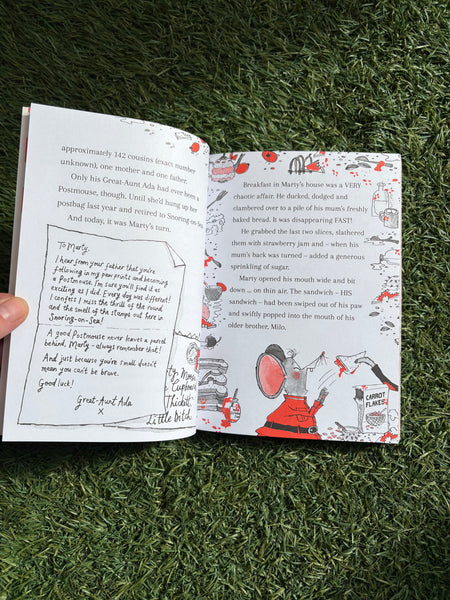 approximately 142 cousins (exact number
unknown), one mother and one father.
Only his Great-Aunt Ada had ever been a
Postmouse, though. Until she'd hung up her
postbag last year and retired to Snoring-on-Sea.
And today, it was Marty's turn.
To Marty,
I hear from your father that you're
following in my paw prints and becoming
a Postmouse. I'm sure you'll find it as
exciting as I did. Every day was different!
I confess I miss the thrill of the round
and the smell of the stamps out here in
Snoring-on-Sea!
A good Postmouse never leaves a parcel
behind, Marty - always remember that!
And just because you're small doesn't
mean you can't be brave.
Good luck!
Great-Aunt Ada
x
Cupboard
Thicket
Little Ditch
Breakfast in Marty's house was a VERY
chaotic affair. He ducked, dodged and
clambered over to a pile of his mum's freshly
baked bread. It was disappearing FAST!
He grabbed the last two slices, slathered
them with strawberry jam and – when his
mum's back was turned – added a generous
sprinkling of sugar.
Marty opened his mouth wide and bit
down ... on thin air. The sandwich – HIS
sandwich – had been swiped out of his paw
and swiftly popped into the mouth of his
older brother, Milo.
CARROT
FLAKES